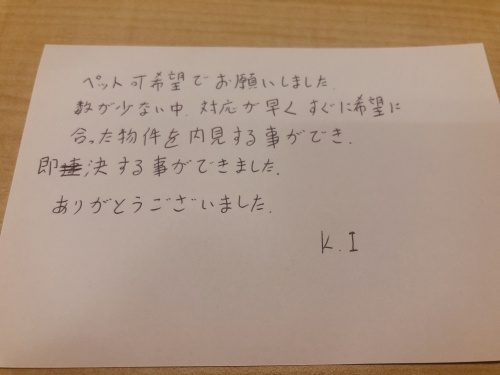 ペット可希望でお願いしました.
数が少ない中.対応が早くすぐに希望に
合った物件を内見する事ができ.
即決する事ができました.
ありがとうございました.
K.I